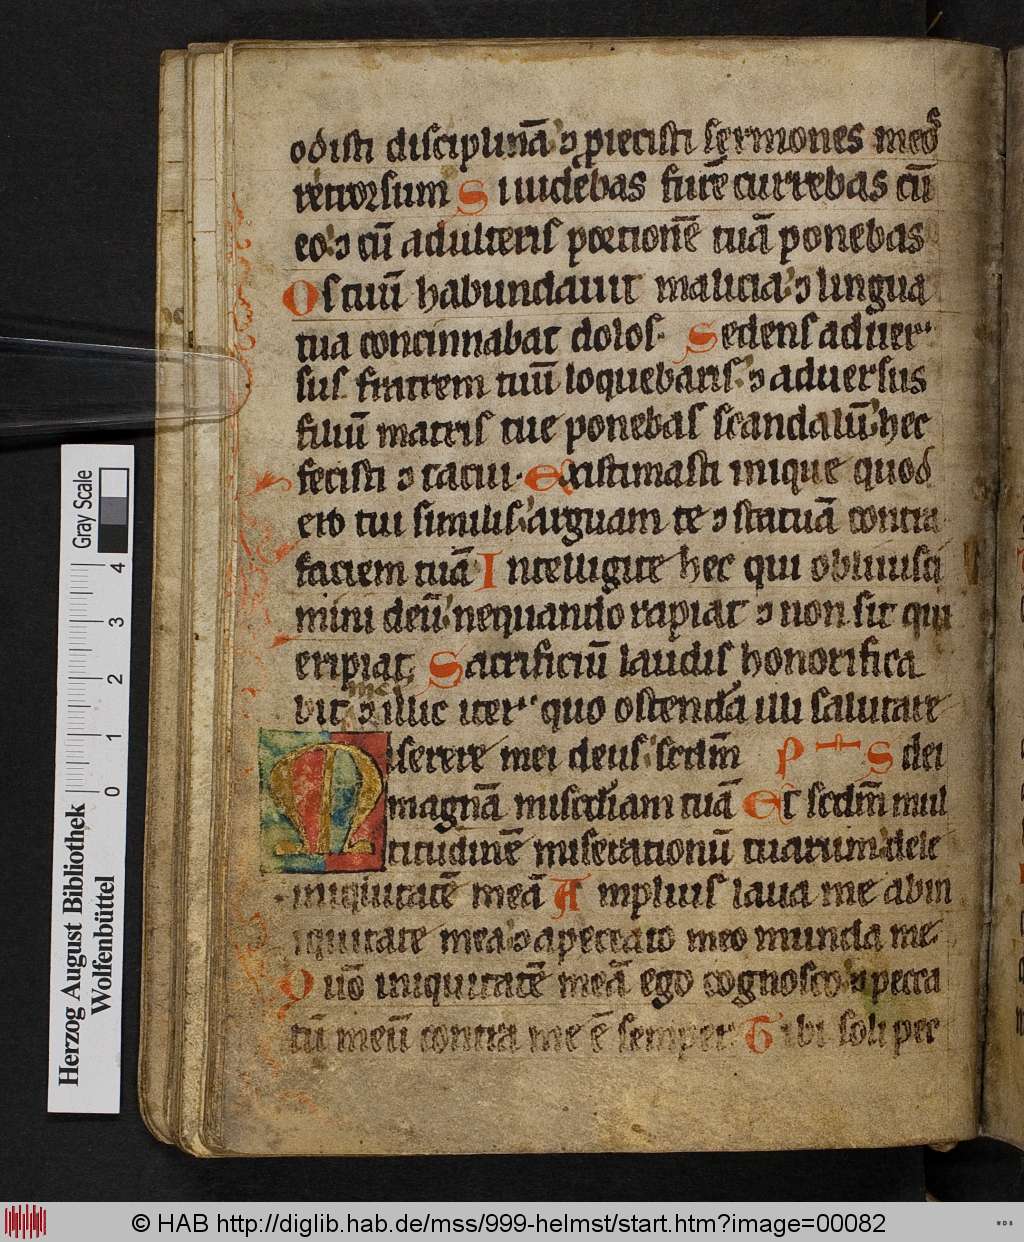 odisti disciplinā ⁊ proiecisti sermones meos
retrorsum Si uidebas furē currebas cū
eo ⁊ cū adulteris portionē tuā ponebas
Os tuū habundauit malicia ⁊ lingua
tua concinnabat dolos. Sedens aduer
sus fratrem tuū loquebaris ⁊ aduersus
filiū matris tue ponebas scandalū hec
fecisti ⁊ tacui. Existimasti inique quod
ero tui similis arguam te ⁊ statuā contra
faciem tuā Intelligite hec qui obliuisci
mini deū nequando rapiat ⁊ non sit qui
eripiat. Sacrificiū laudis honorifica
bit me ⁊ illic iter quo ostendā illi salutare
Miserere mei deus scdm PS dei
magnā misericordiam tuā Et scdm mul
titudinē miserationū tuarum dele
iniquitatē meā Amplius laua me ab in
iquitate mea ⁊ a peccato meo munda me
Quō iniquitatē meā ego cognosco ⁊ pecca
tū meū contra me ē semper Tibi soli pec
Herzog August Bibliothek
Wolfenbüttel
0 1 2 3 4
Gray Scale
© HAB http://diglib.hab.de/mss/999-helmst/start.htm?image=00082